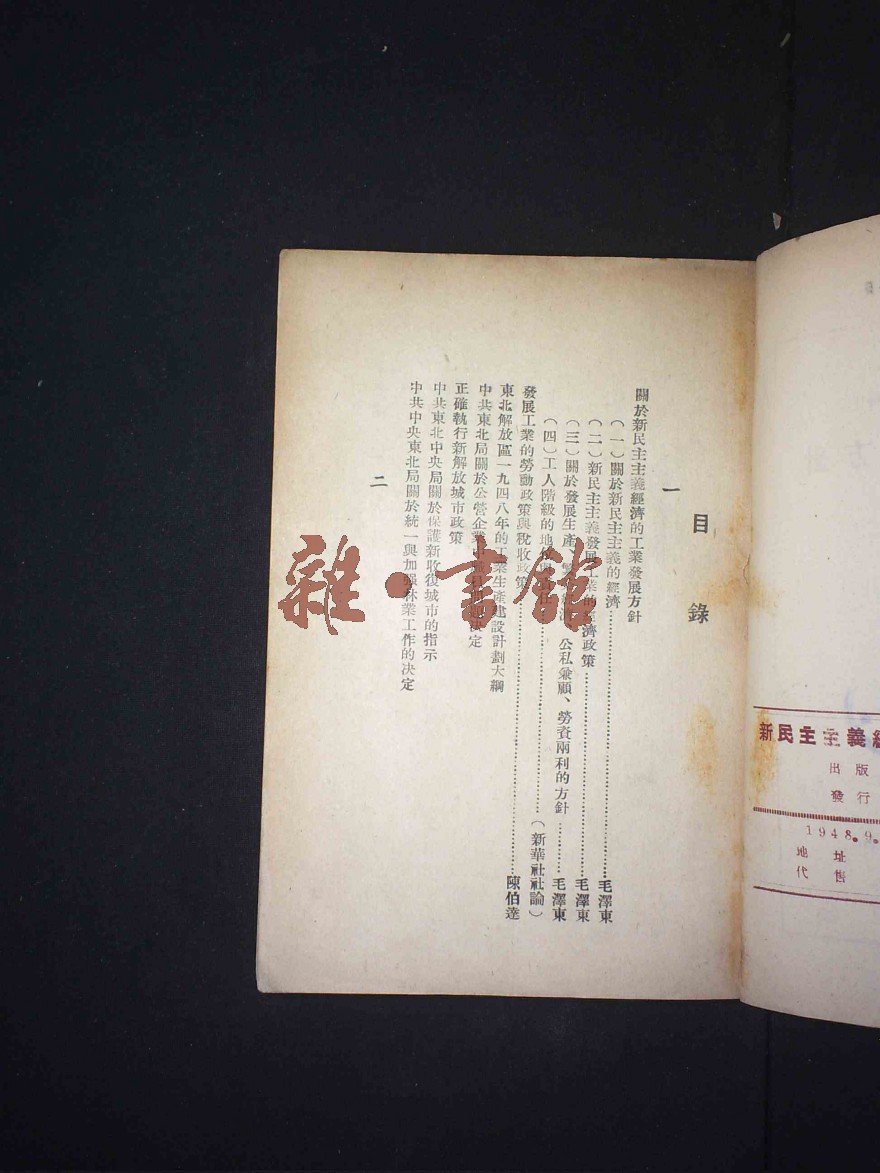 目錄
一
關於新民主主義經濟的工業發展方針
（一）關於新民主主義的經濟……毛澤東
（二）新民主主義發展工業的經濟政策……毛澤東
（三）關於發展生產、繁榮經濟、公私兼顧、勞資兩利的方針……毛澤東
（四）工人階級的地位……（新華社社論）
發展工業的勞動政策與稅收政策……陳伯達
東北解放區一九四八年的工業生產建設計劃大綱
中共東北局關於公營企業中職員決定
正確執行新解放城市政策
中共東北中央局關於保護新收復城市的指示
中共中央東北局關於統一與加強林業工作的决定
二
新民主主義
出版
發行
1948.9.
地址
代售
雜·書館